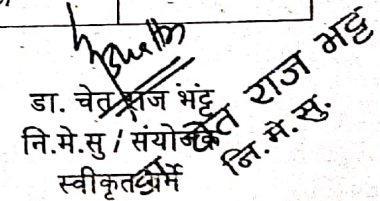 डा. चेत राज भट्ट
नि.मे.सु / संयोजक
स्वीकृत गर्ने
चेत राज भट्ट
नि.मे.सु.